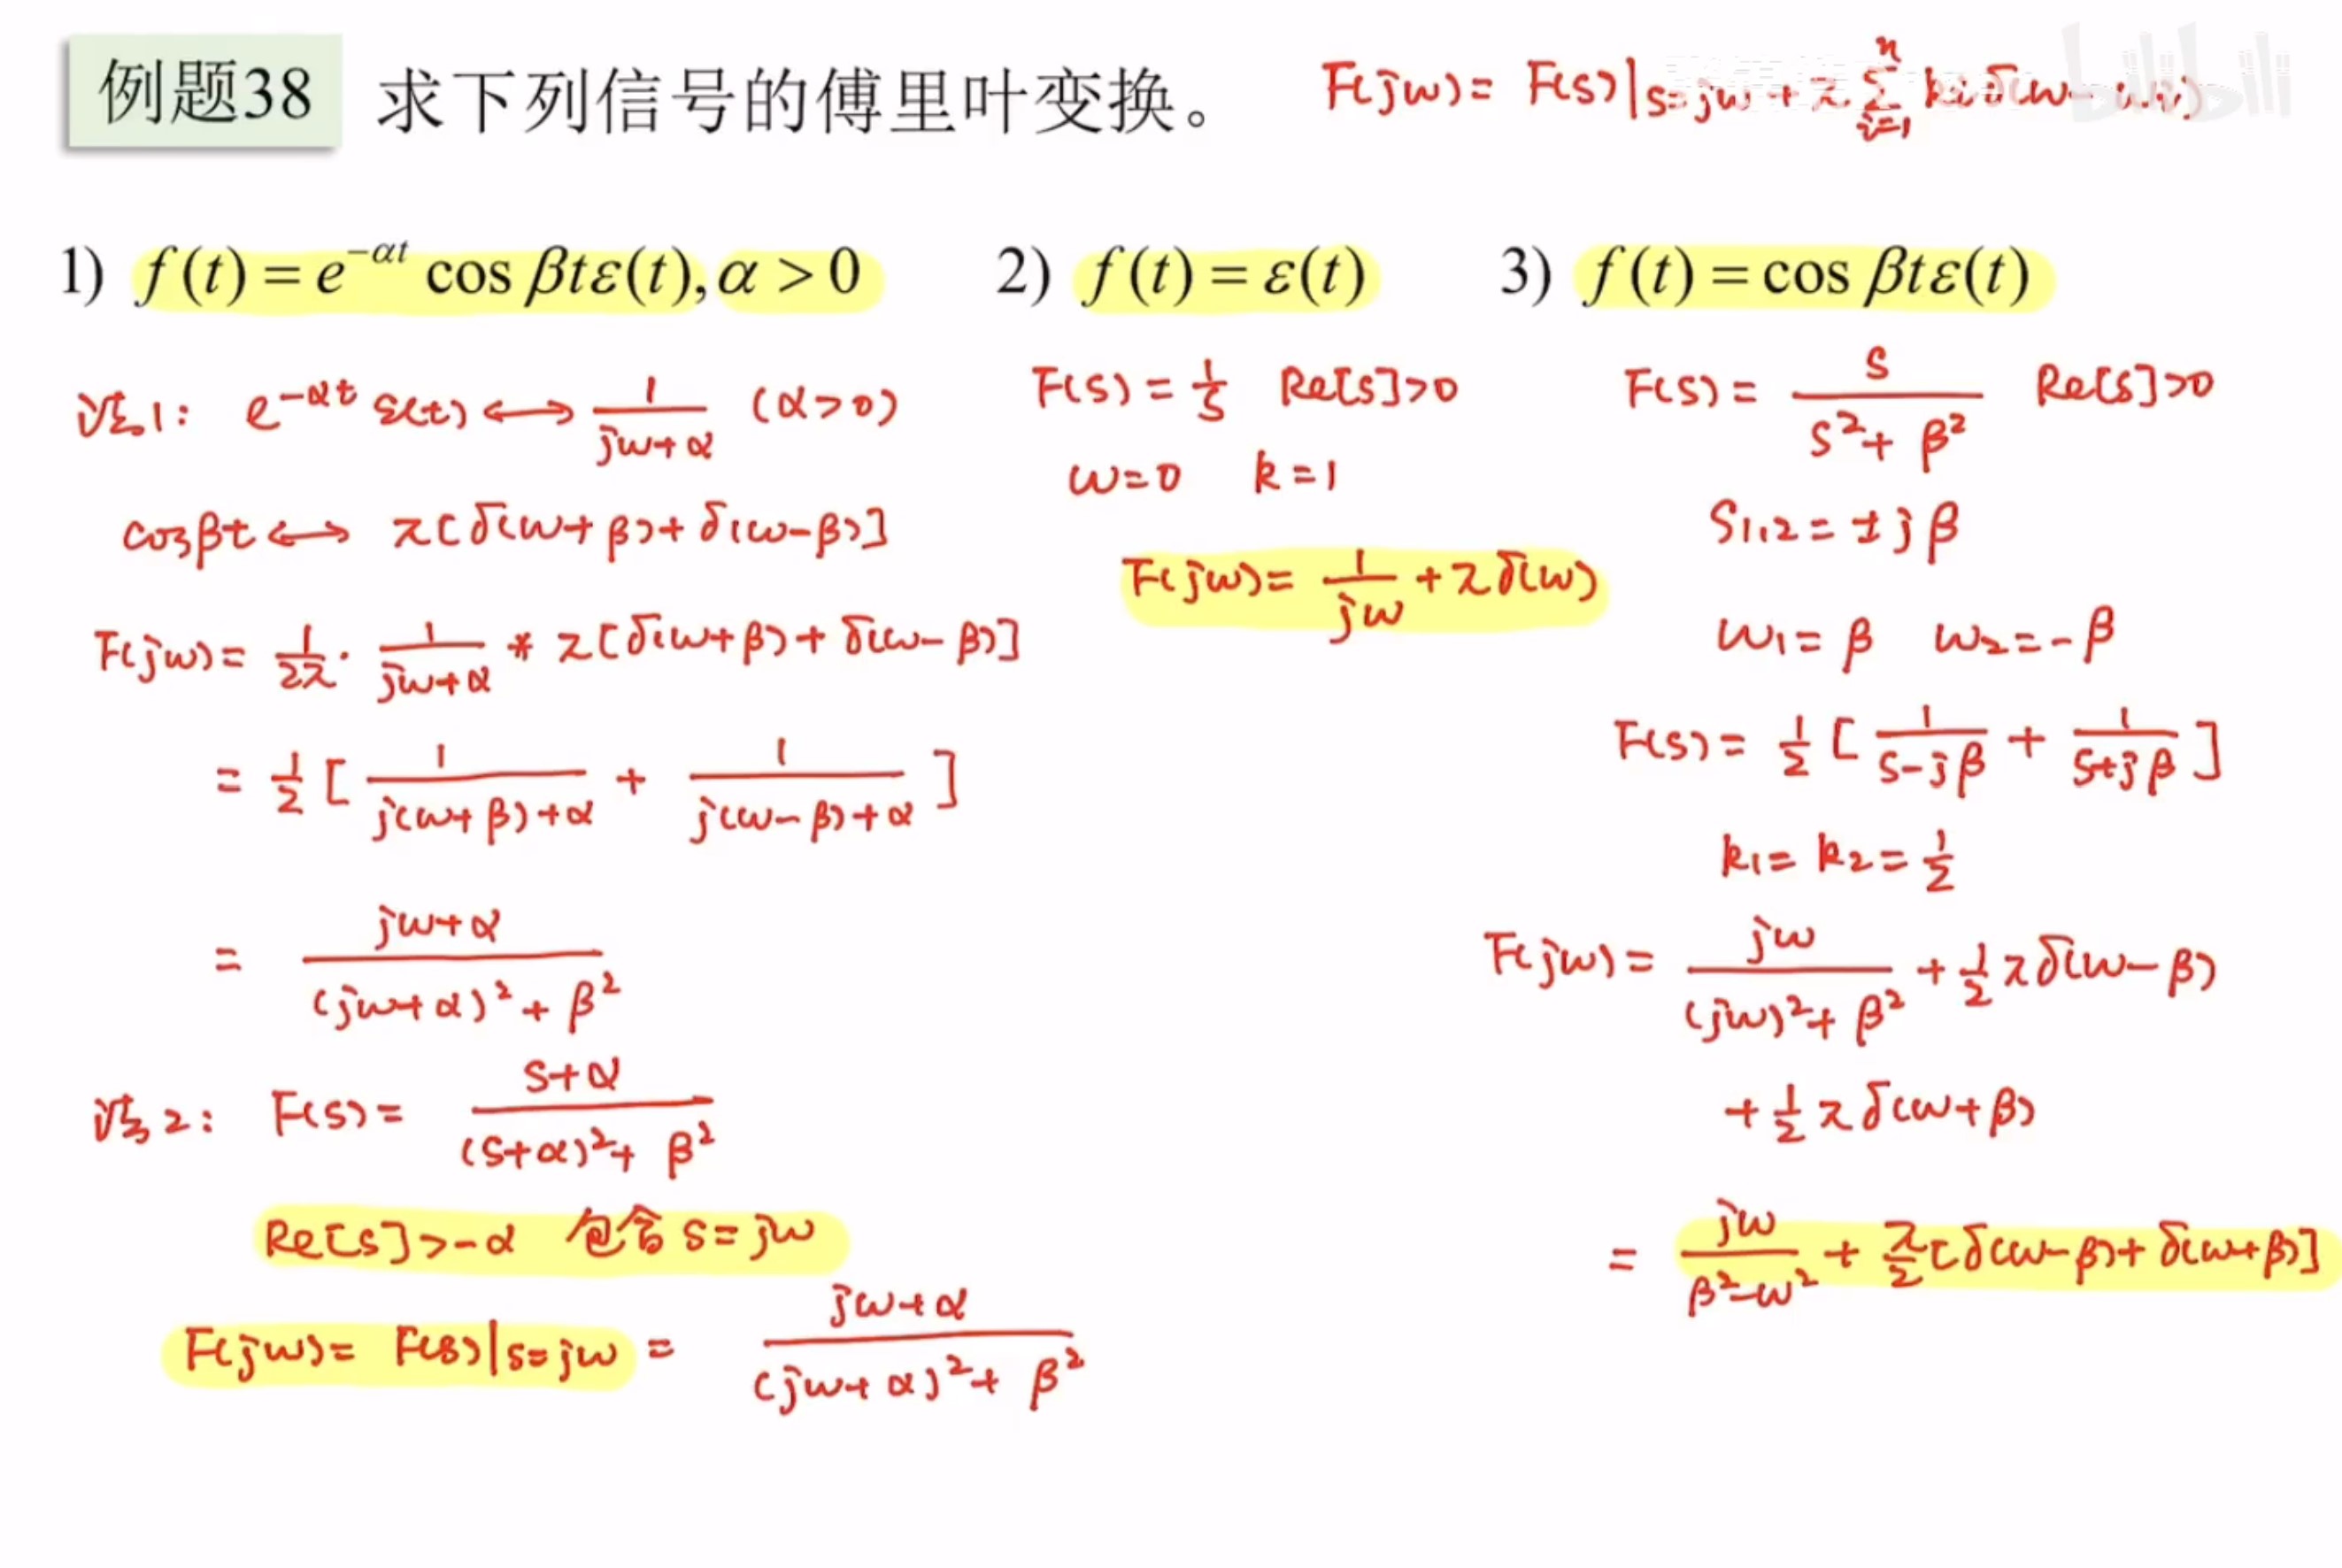 例题38 求下列信号的傅里叶变换。 F(jω)= F(s)|s=jω + π Σ(i=1→n) kᵢδ(ω-ωᵢ)
bilibili
1) f(t)=e^{-αt} cos βtε(t), α>0 2) f(t)=ε(t) 3) f(t)=cos βtε(t)
法1: e^{-αt} ε(t) ⟷ 1/(jω+α) (α>0)
cosβt ⟷ π[δ(ω+β)+δ(ω-β)]
F(jω)= 1/2π · 1/(jω+α) * π[δ(ω+β)+δ(ω-β)]
= 1/2 [ 1/(j(ω+β)+α) + 1/(j(ω-β)+α) ]
= (jω+α)/((jω+α)²+β²)
法2: F(s)= (s+α)/((s+α)²+β²)
Re[s]>-α 包含 s=jω
F(jω)= F(s)|s=jω = (jω+α)/((jω+α)²+β²)
F(s)= 1/s Re[s]>0
ω=0 k=1
F(jω)= 1/jω +πδ(ω)
F(s)= s/(s²+β²) Re[s]>0
s1,2=±jβ
ω1=β ω2=-β
F(s)= 1/2 [ 1/(s-jβ) + 1/(s+jβ) ]
k1=k2=1/2
F(jω)= jω/((jω)²+β²) + 1/2 πδ(ω-β)
+ 1/2 πδ(ω+β)
= jω/(β²-ω²) + π/2 [δ(ω-β)+δ(ω+β)]